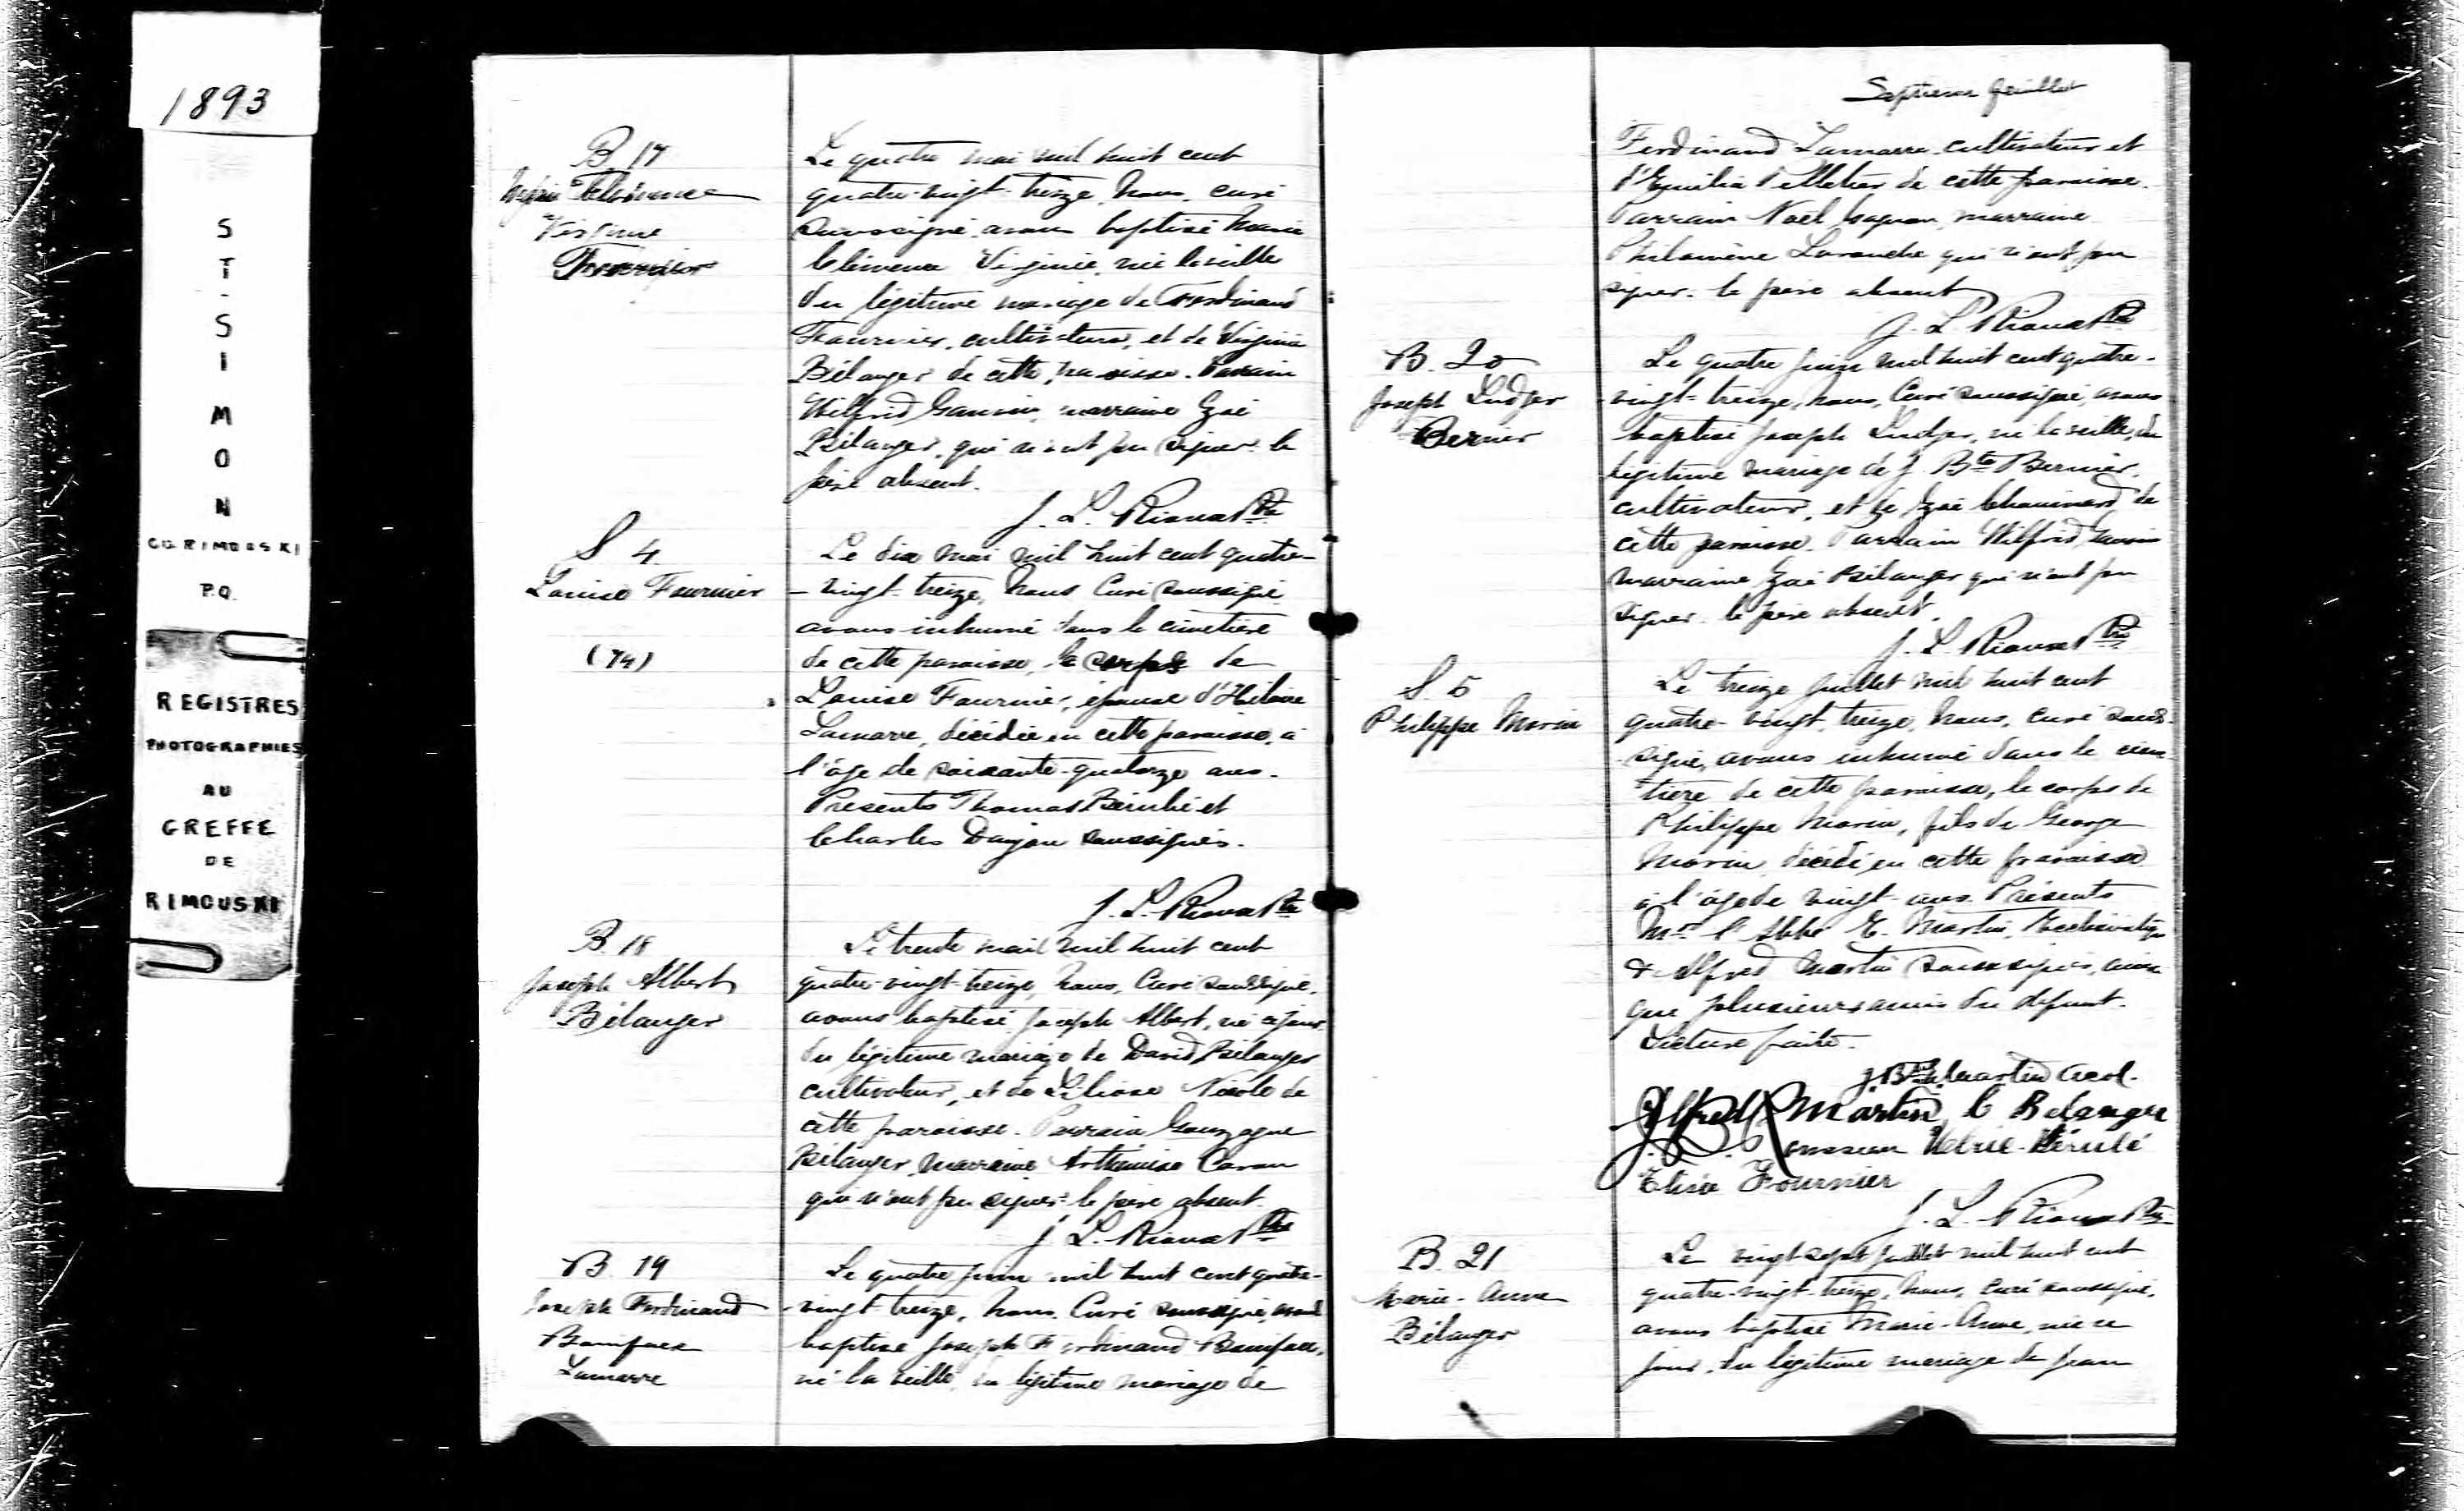 1893
ST-SIMON
CO. RIMOUSKI
P.Q.
REGISTRES
PHOTOGRAPHIES
AU
GREFFE
DE
RIMOUSKI
B 17
Virginie
Fournier
Le quatre mai mil huit cent
quatre-vingt-treize, Nous, curé
soussigné avons baptisé Marie
Clémence Virginie, née la veille
du légitime mariage de Ferdinand
Fournier, cultivateur, et de Virginie
Bélanger de cette paroisse. Parrain
Wilfrid Gauvin, marraine Zoé
Bélanger, qui n'ont pu signer. le
père absent.
J. L. Rioux Ptre
S 4
Louise Fournier
(74)
Le dix mai mil huit cent quatre-
-vingt-treize, Nous Curé soussigné
avons inhumé dans le cimetière
de cette paroisse, le corps de
Louise Fournier, épouse d'Hilaire
Lamarre, décédée en cette paroisse, à
l'âge de soixante-quatorze ans.
Présents Thomas Bérubé et
Charles Danjou soussignés.
J. L. Rioux Ptre
B. 18
Joseph Albert
Bélanger
Le trente mai mil huit cent
quatre-vingt-treize, Nous, Curé soussigné,
avons baptisé Joseph Albert, né ce jour
du légitime mariage de David Bélanger
cultivateur, et de Nicole de
cette paroisse. Parrain Gonzague
Bélanger, marraine Arthémise Caron
qui n'ont pu signer. le père absent.
J. L. Rioux Ptre
B. 19
Joseph Ferdinand
Boniface
Lamarre
Le quatre juin mil huit cent quatre-
-vingt-treize, Nous, Curé soussigné, avons
baptisé Joseph Ferdinand Boniface,
né la veille, du légitime mariage de
Septième feuillet
Ferdinand Lamarre, cultivateur et
d'Emilia Pelletier de cette paroisse.
Parrain Noël Gagnon, marraine
Philomène Lavandre qui n'ont pu
signer. le père absent
J. L. Rioux Ptre
B. 20
Joseph Ludger
Bernier
Le quatre juin mil huit cent quatre-
vingt-treize, Nous, Curé soussigné, avons
baptisé Joseph Ludger, né la veille, du
légitime mariage de J. Bte Bernier,
cultivateur, et de Zoé Chouinard de
cette paroisse. Parrain Wilfrid Gauvin
marraine Zoé Bélanger qui n'ont pu
signer. le père absent.
J. L. Rioux Ptre
S. 5
Philippe Morin
Le treize juillet mil huit cent
quatre-vingt-treize, Nous, curé sous-
signé, avons inhumé dans le cime-
tière de cette paroisse, le corps de
Philippe Morin, fils de George
Morin, décédé en cette paroisse
à l'âge de vingt ans. Présents
Mr. l'Abbé E. Martin, Ecclésiastique
& Alfred Martin soussignés, ainsi
que plusieurs amis du défunt.
Lecture faite.
J. Bte E. Martin acol.
Alfred Martin C Belanger
Bérubé
Elisée Fournier
J. L. Rioux Ptre
B. 21
Marie-Anne
Bélanger
Le vingt-sept juillet mil huit cent
quatre-vingt-treize, Nous, curé soussigné,
avons baptisé Marie-Anne, née ce
jour, du légitime mariage de Jean